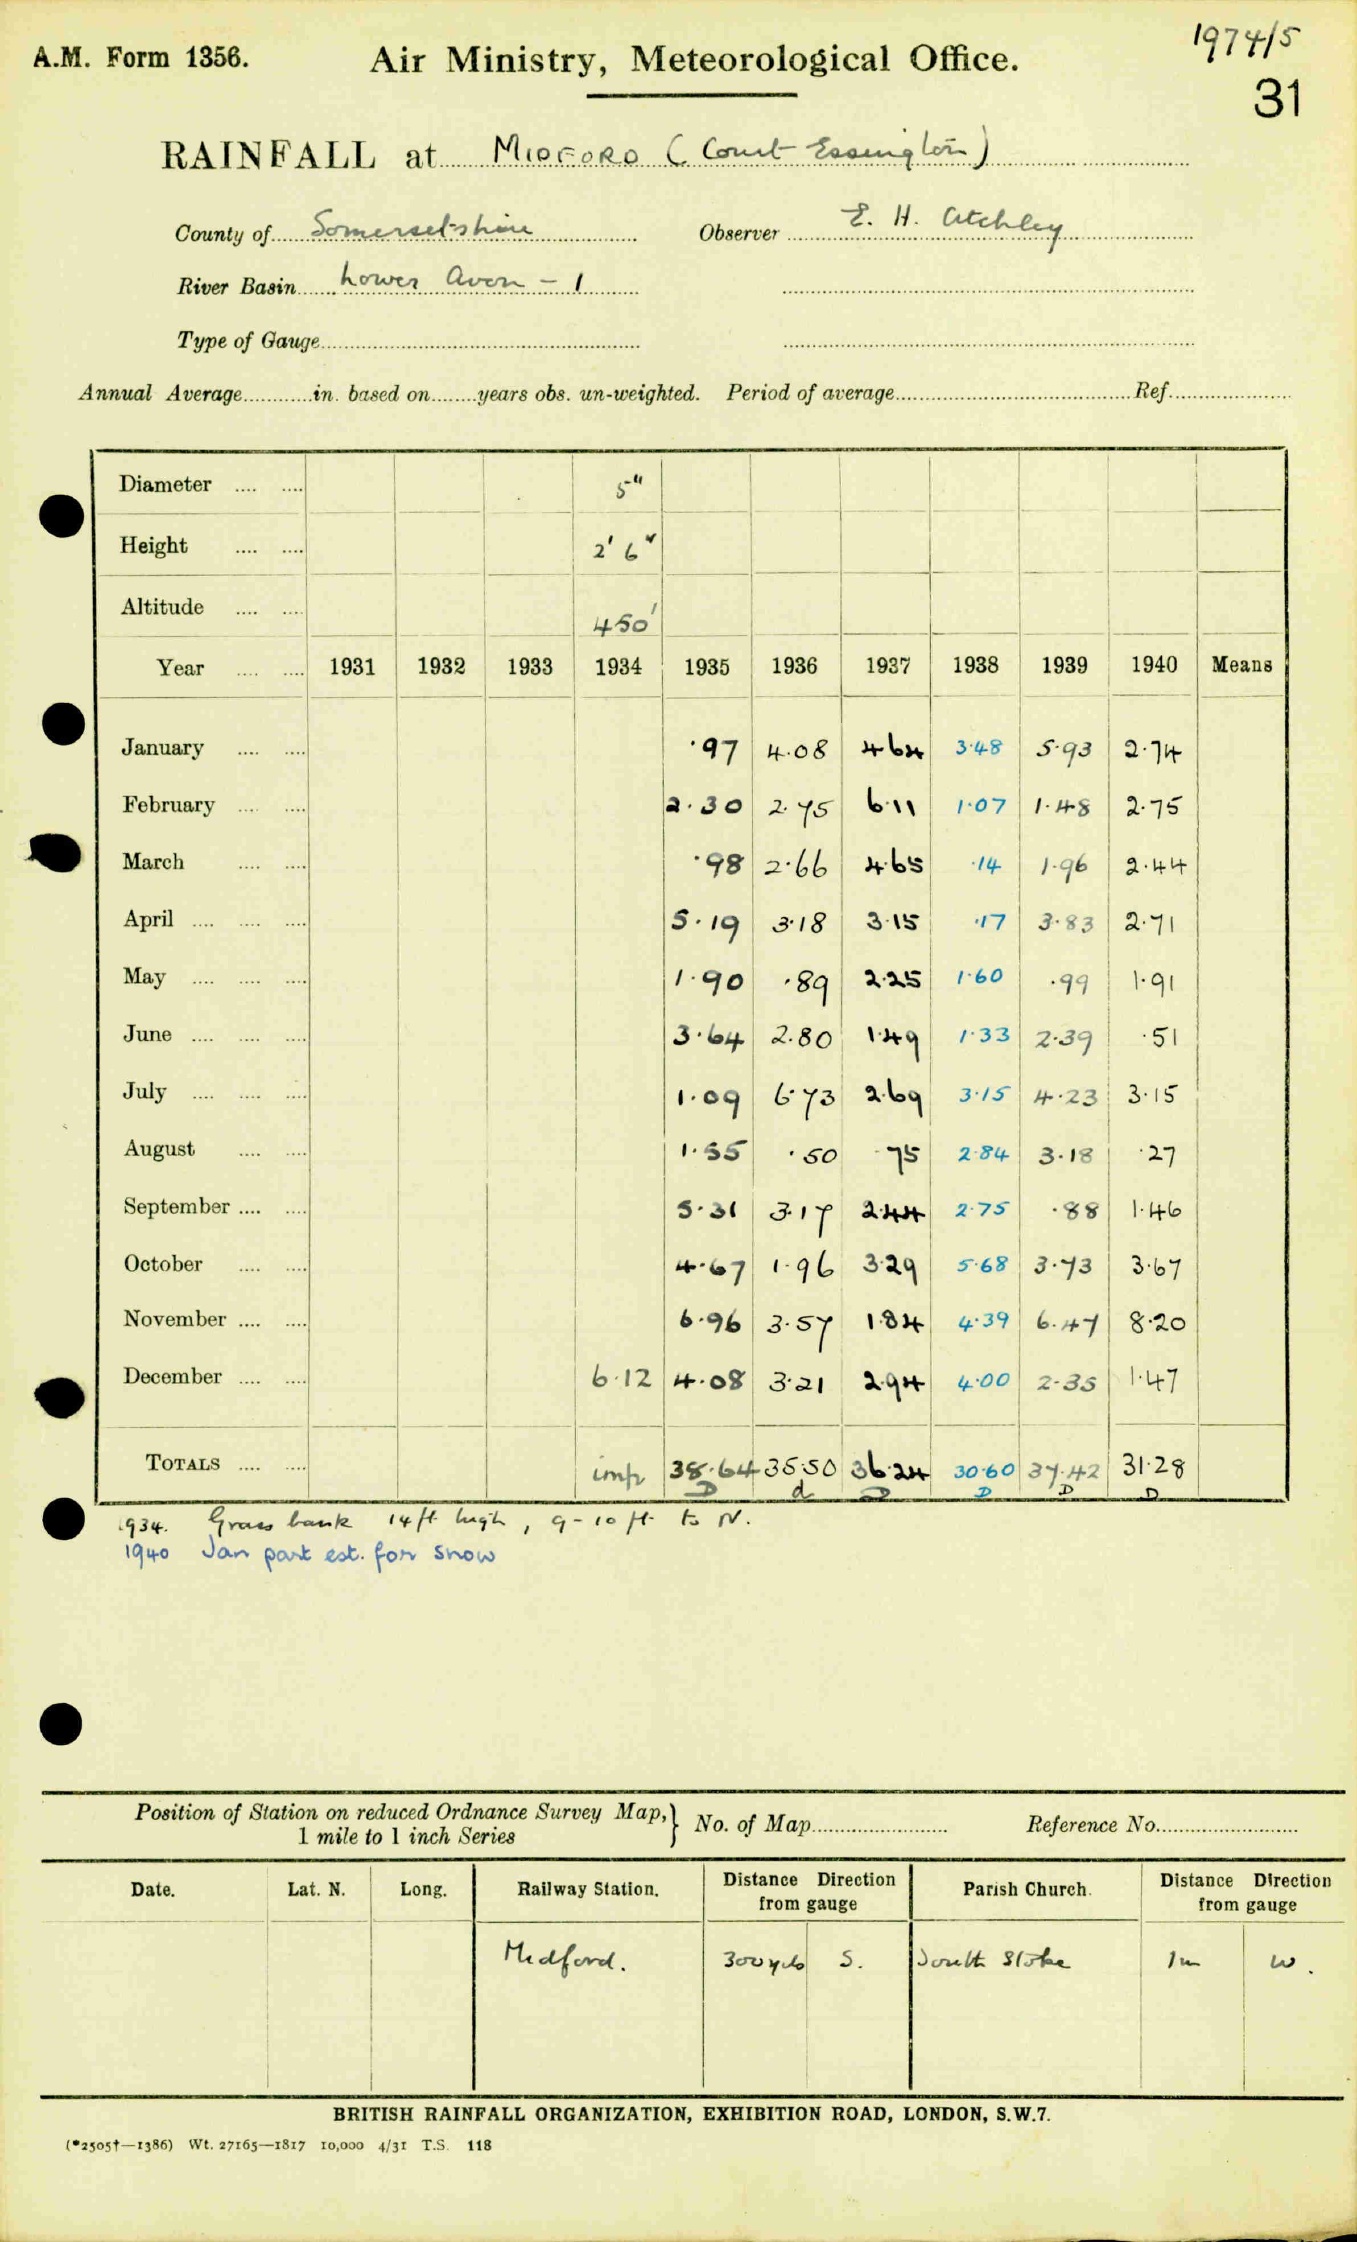 A.M. Form 1356.
Air Ministry, Meteorological Office.
1974/5
31
RAINFALL at MIDFORD (Court Essington)
County of Somersetshire Observer E. H. Atchley
River Basin Lower Avon - 1
Type of Gauge
Annual Average in. based on years obs. un-weighted. Period of average Ref.
Diameter 5"
Height 2' 6"
Altitude 450'
Year 1931 1932 1933 1934 1935 1936 1937 1938 1939 1940 Means
January ·97 4·08 4·64 3·48 5·93 2·74
February 2·30 2·75 6·11 1·07 1·48 2·75
March ·98 2·66 4·65 ·14 1·96 2·44
April 5·19 3·18 3·15 ·17 3·83 2·71
May 1·90 ·89 2·25 1·60 ·99 1·91
June 3·64 2·80 1·49 1·33 2·39 ·51
July 1·09 6·73 2·69 3·15 4·23 3·15
August 1·55 ·50 ·75 2·84 3·18 ·27
September 5·31 3·17 2·44 2·75 ·88 1·46
October 4·67 1·96 3·29 5·68 3·73 3·67
November 6·96 3·57 1·84 4·39 6·47 8·20
December 6·12 4·08 3·21 2·94 4·00 2·35 1·47
TOTALS imp 38·64 35·50 36·24 30·60 37·42 31·28
D d D D D D
1934. Grass bank 14 ft high, 9-10 ft to N.
1940 Jan part est. for snow
Position of Station on reduced Ordnance Survey Map,
1 mile to 1 inch Series
No. of Map Reference No.
Date. Lat. N. Long. Railway Station. Distance Direction from gauge Parish Church. Distance Direction from gauge
Midford. 300 yds S. South Stoke 1m W.
BRITISH RAINFALL ORGANIZATION, EXHIBITION ROAD, LONDON, S.W.7.
(*2505†—1386) Wt. 27165—1817 10,000 4/31 T.S. 118